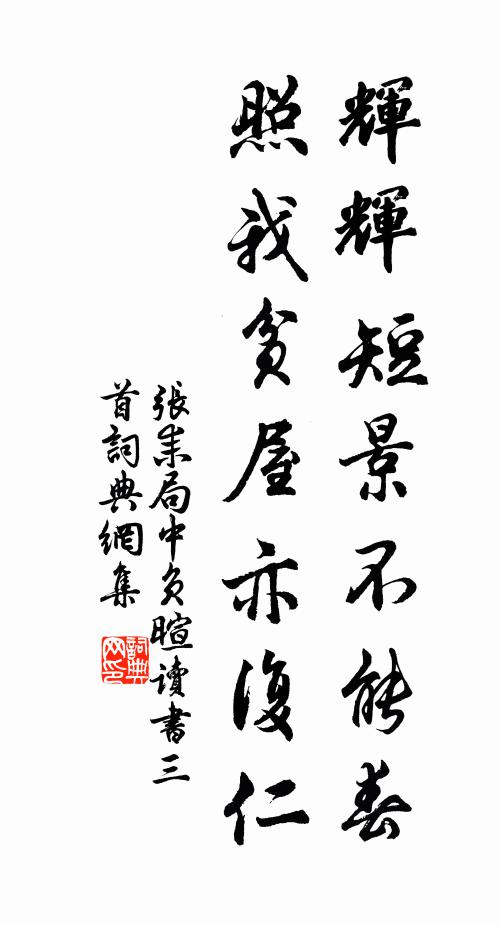 輝輝短景不能春
照我貧屋亦復仁
張耒局中負暄讀書三
首詞典網集
詞典
网印